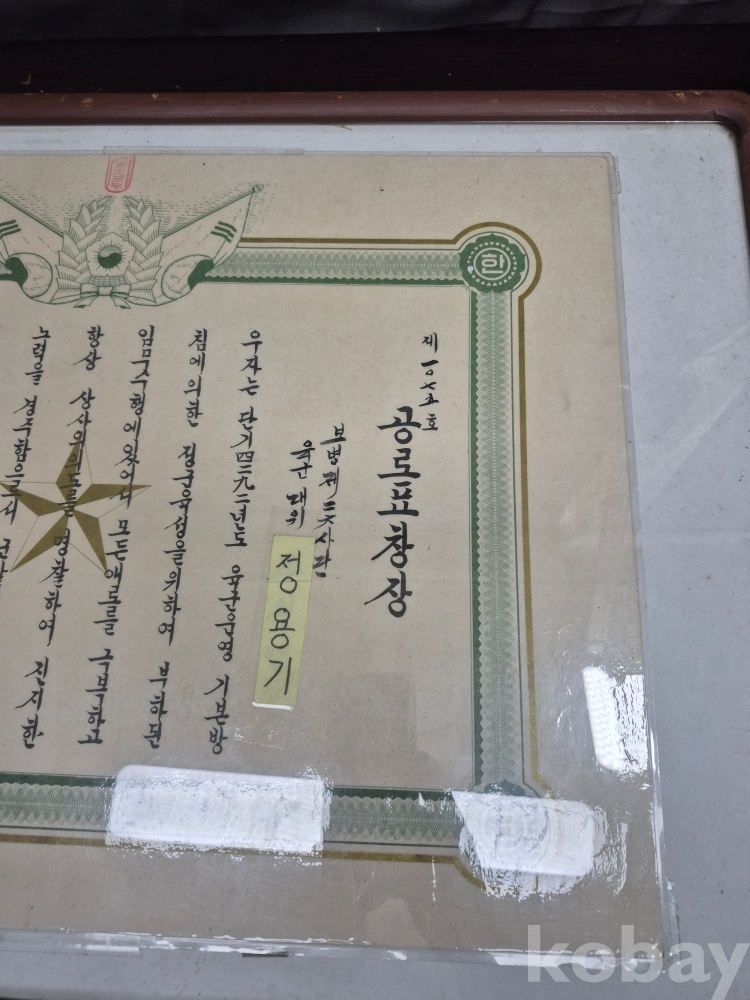 제一〇七五호
공로표창장
보병제二六사단
육군대위
정용기
우자는 단기四二九二년도 육군운영 기본방
침에 의한 정군육성을 위하여 부하된
임무수행에 있어서 모든 애로를 극복하고
항상 상사의 의도를 명찰하여 진지한
노력을 경주함으로서
한
kobay